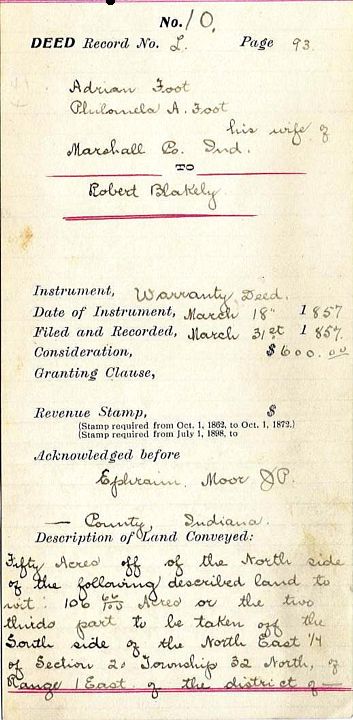 No. 10.
DEED Record No. L. Page 93
Adrian Foot
Philomela A. Foot
his wife of
Marshall Co. Ind.
TO
Robert Blakely
Instrument, Warranty Deed.
Date of Instrument, March 18" 1857
Filed and Recorded, March 31st 1857.
Consideration, $600.00
Granting Clause,
Revenue Stamp, $
(Stamp required from Oct. 1, 1862, to Oct. 1, 1872.)
(Stamp required from July 1, 1898, to
Acknowledged before
Ephraim Moor JP
— County, Indiana.
Description of Land Conveyed:
Fifty Acres off of the North side
of the following described land to
wit: 106 66/100 Acres or the two
thirds part to be taken off the
South side of the North East 1/4
of Section 20 Township 32 North, of
Range 1 East of the district of —